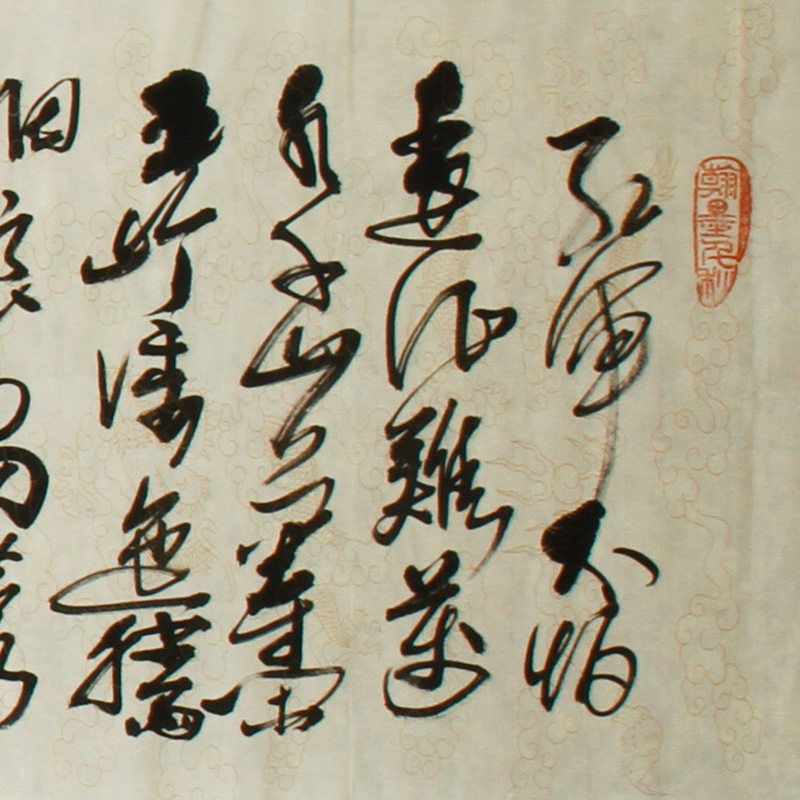 翰墨
紅軍不怕
遠征難萬
水千山只等閑
五岭逶迤騰
細浪烏蒙